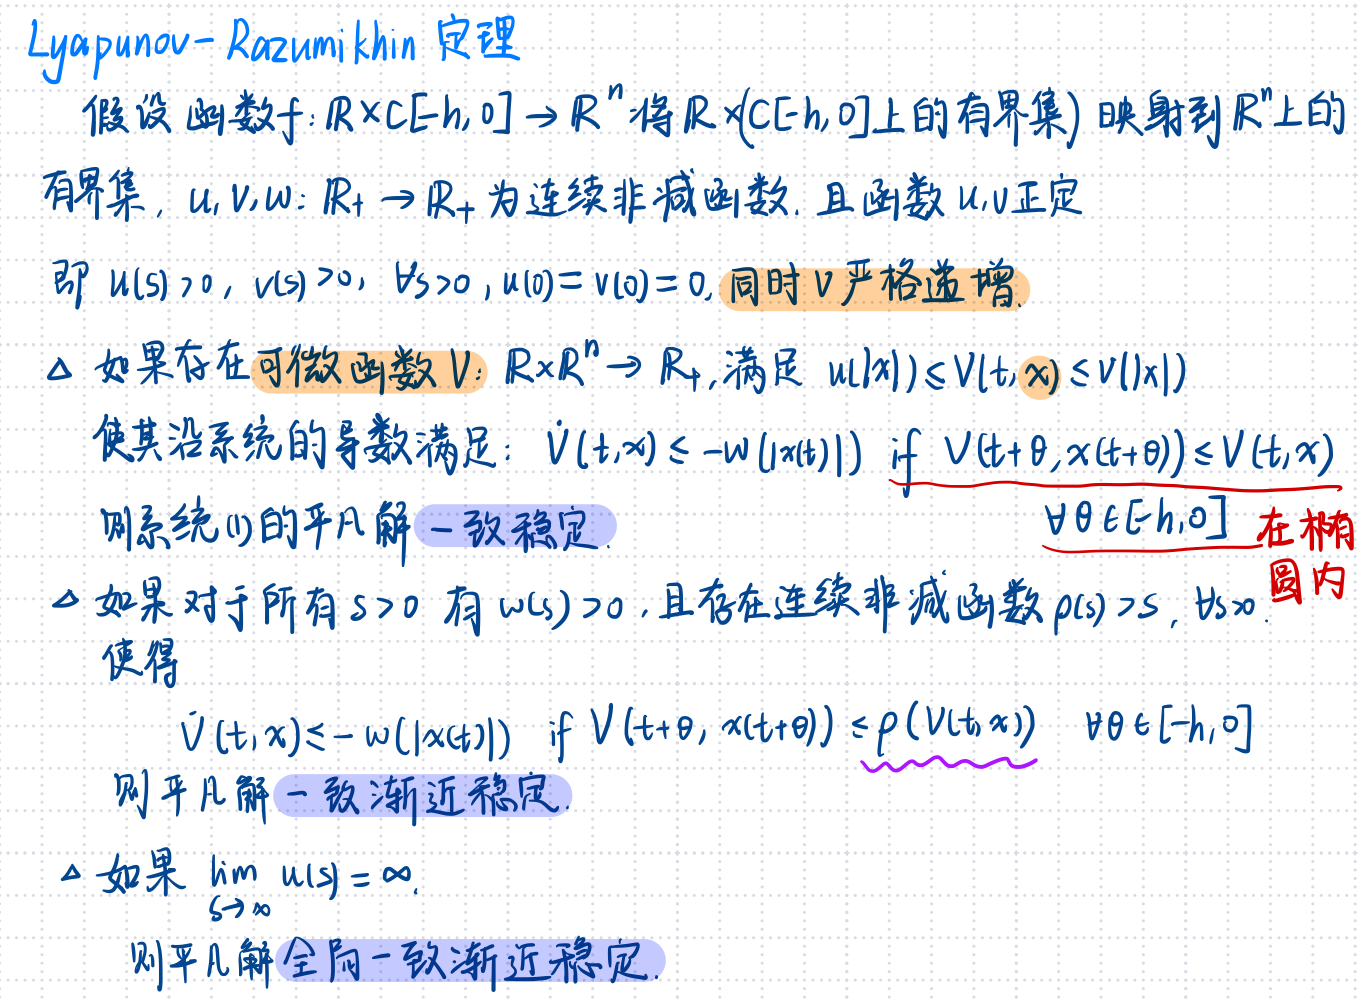 Lyapunov-Razumikhin 定理
假设函数f: R×C[-h,0]→Rⁿ 将R×(C[-h,0]上的有界集) 映射到Rⁿ上的
有界集, u,v,w: R₊→R₊ 为连续非减函数. 且函数u,v正定
即 u(s)>0, v(s)>0, ∀s>0, u(0)=v(0)=0, 同时v严格递增.
△ 如果存在可微函数V: R×Rⁿ→R₊, 满足 u(|x|)≤V(t,x)≤v(|x|)
使其沿系统的导数满足: V̇(t,x)≤-w(|x(t)|) if V(t+θ,x(t+θ))≤V(t,x)
∀θ∈[-h,0] 在椭
圆内
则系统(1)的平凡解一致稳定.
△ 如果对于所有s>0 有w(s)>0, 且存在连续非减函数p(s)>s, ∀s>0.
使得
V̇(t,x)≤-w(|x(t)|) if V(t+θ, x(t+θ))≤p(V(t,x)) ∀θ∈[-h,0]
则平凡解一致渐近稳定.
△ 如果 lim u(s)=∞.
s→∞
则平凡解全局一致渐近稳定.